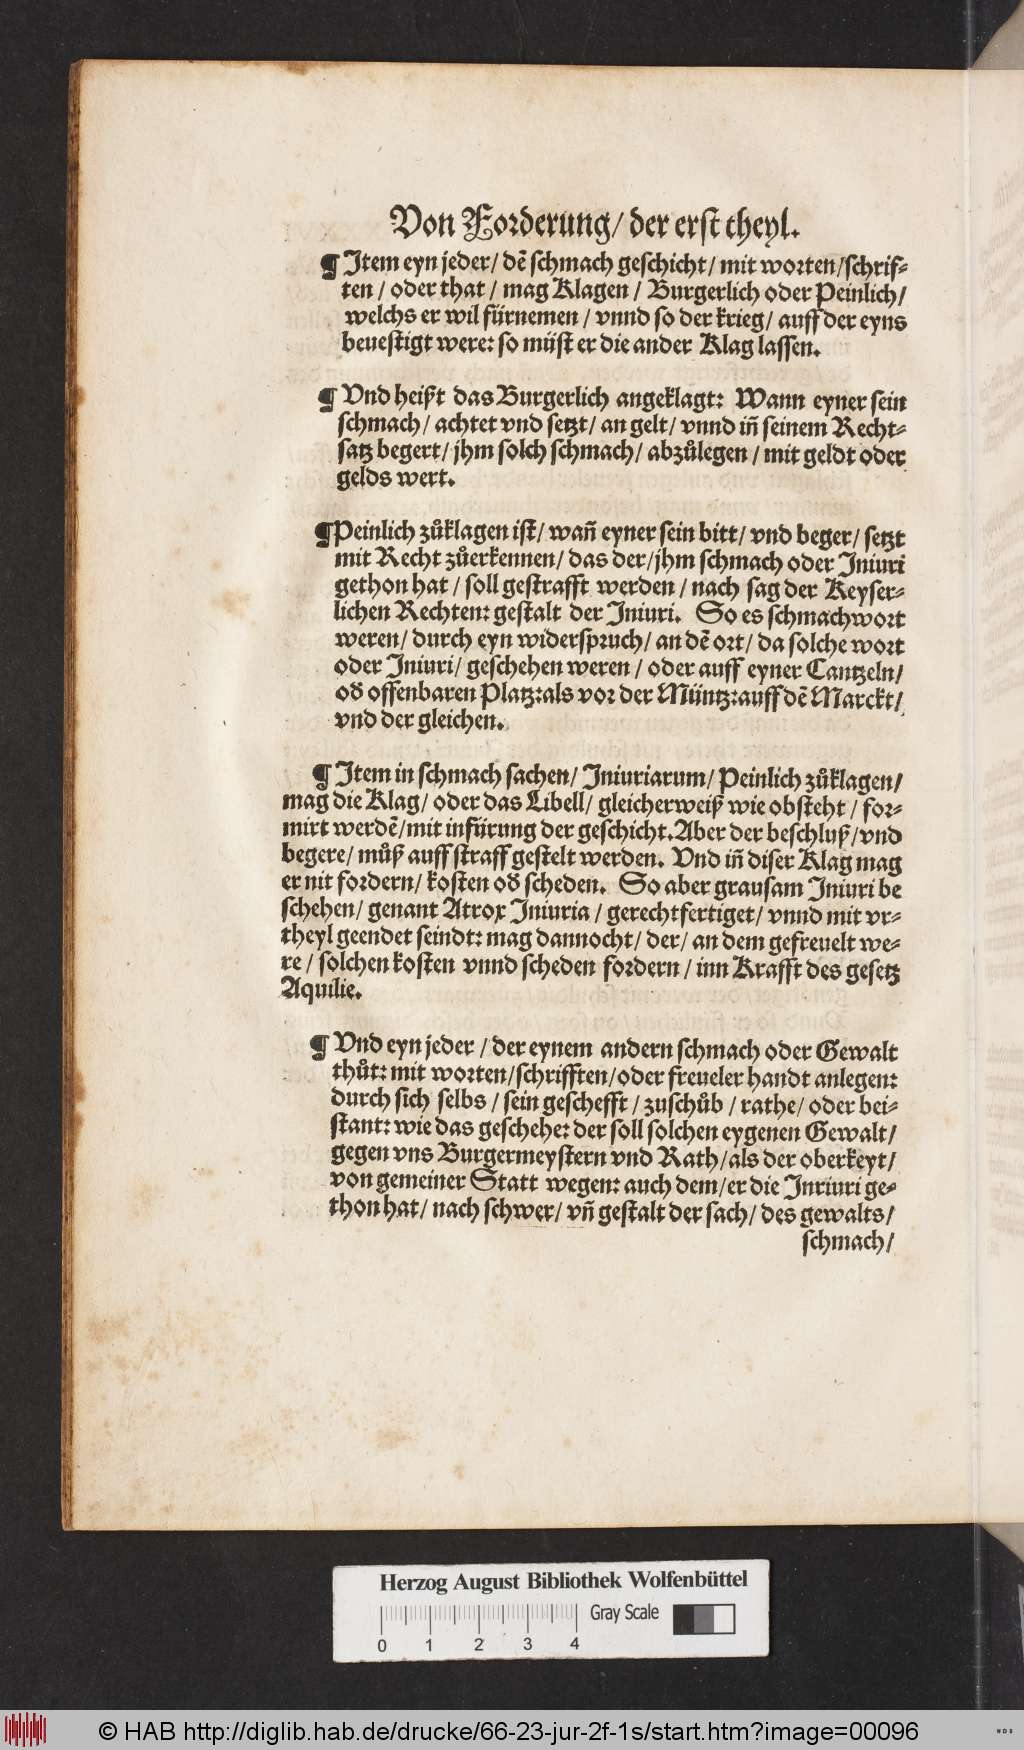 Von Forderung/ der erst theyl.
¶ Item eyn jeder/ dẽ schmach geschicht/ mit worten/schrif-
ten / oder that / mag Klagen / Burgerlich oder Peinlich/
welchs er wil fürnemen / vnnd so der krieg/ auff der eyns
beuestigt were: so müst er die ander Klag lassen.
¶ Vnd heißt das Burgerlich angeklagt: Wann eyner sein
schmach/ achtet vnd setzt/ an gelt/ vnnd iñ seinem Recht-
satz begert/ jhm solch schmach/ abzůlegen / mit geldt oder
gelds wert.
¶Peinlich zůklagen ist/ wañ eyner sein bitt/ vnd beger/ setzt
mit Recht zůerkennen/ das der/jhm schmach oder Iniuri
gethon hat / soll gestrafft werden / nach sag der Keyser-
lichen Rechten: gestalt der Iniuri. So es schmachwort
weren/ durch eyn widerspruch/ an dẽ ort/ da solche wort
oder Iniuri/ geschehen weren / oder auff eyner Cantzeln/
oď offenbaren Platz:als vor der Müntz:auff dẽ Marckt/
vnd der gleichen.
¶ Item in schmach sachen/ Iniuriarum/ Peinlich zůklagen/
mag die Klag/ oder das Libell/ gleicherweiß wie obsteht / for-
mirt werdẽ/mit infürung der geschicht.Aber der beschluß/vnd
begere/ můß auff straff gestelt werden. Vnd iñ diser Klag mag
er nit fordern/ kosten oď scheden. So aber grausam Iniuri be
schehen/ genant Atrox Iniuria / gerechtfertiget/ vnnd mit vr-
theyl geendet seindt: mag dannocht/ der/ an dem gefreuelt we-
re / solchen kosten vnnd scheden fordern / inn Krafft des gesetz
Aquilie.
¶ Vnd eyn jeder / der eynem andern schmach oder Gewalt
thůt: mit worten/schrifften/oder freueler handt anlegen:
durch sich selbs / sein geschefft / zuschůb / rathe/ oder bei-
stant: wie das geschehe: der soll solchen eygenen Gewalt/
gegen vns Burgermeystern vnd Rath/als der oberkeyt/
von gemeiner Statt wegen: auch dem/er die Inriuri ge-
thon hat/ nach schwer/ vñ gestalt der sach/ des gewalts/
schmach/
Herzog August Bibliothek Wolfenbüttel
Gray Scale
0 1 2 3 4
© HAB http://diglib.hab.de/drucke/66-23-jur-2f-1s/start.htm?image=00096
WDB